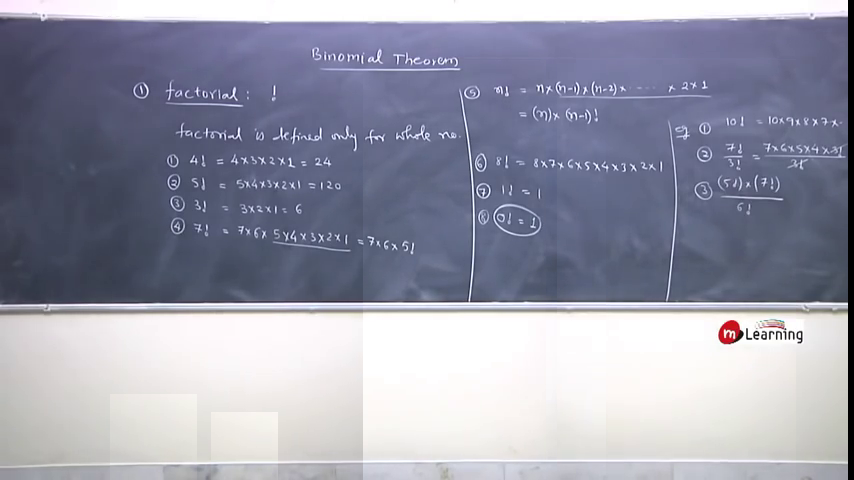 Binomial Theorem
① factorial : !
factorial is defined only for whole no.
① 4! = 4×3×2×1 = 24
② 5! = 5×4×3×2×1 = 120
③ 3! = 3×2×1 = 6
④ 7! = 7×6×5×4×3×2×1 = 7×6×5!
⑤ n! = n×(n-1)×(n-2)× ..... × 2×1
= (n)×(n-1)!
⑥ 8! = 8×7×6×5×4×3×2×1
⑦ 1! = 1
⑧ 0! = 1
eg ① 10! = 10×9×8×7×..
② 7!/3! = 7×6×5×4×3!/3!
③ (5!)×(7!)/6!
m Learning